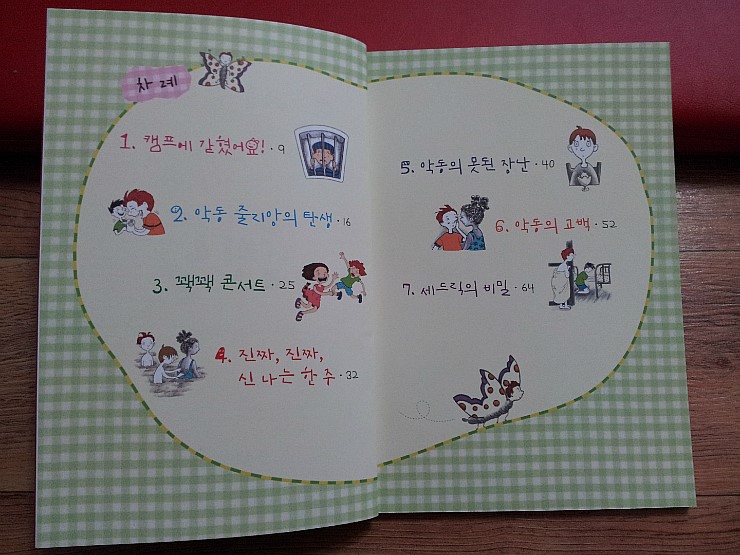 차례
1. 캠프에 갇혔어요! · 9
2. 악동 줄리앙의 탄생 · 16
3. 꽥꽥 콘서트 · 25
4. 진짜, 진짜,
신 나는 한 주 · 32
5. 악동의 못된 장난 · 40
6. 악동의 고백 · 52
7. 세드릭의 비밀 · 64